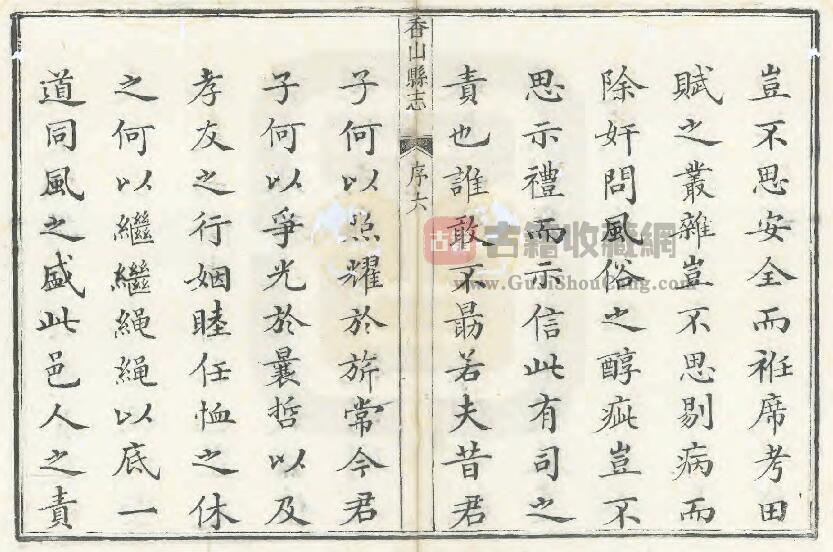 豈不思安全而袵席考田
賦之叢雜豈不思剔病而
除奸問風俗之醇疵豈不
思示禮而示信此有司之
責也誰敢不勗若夫昔君
香山縣志
序六
子何以照耀於旂常今君
子何以爭光於曩哲以及
孝友之行姻睦任恤之休
之何以繼繼繩繩以底一
道同風之盛此邑人之責
古籍收藏網
www.GuJiShouCang.com